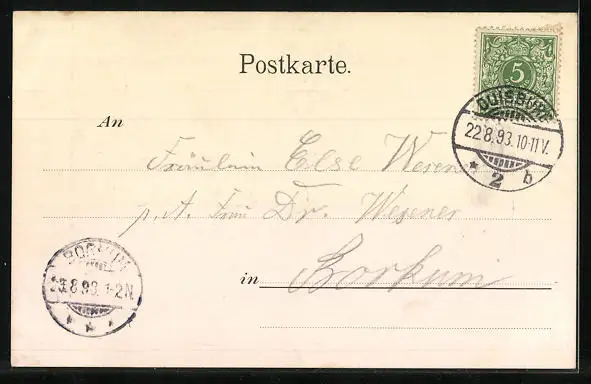 Postkarte.
5
DUISBURG
22.8.93.10-11V.
* 2 b
An
Fräulein Else Wesener
p. A. Frau Dr. Wesener
in Borkum
BORKUM
23.8.93.1-2N.
* * *